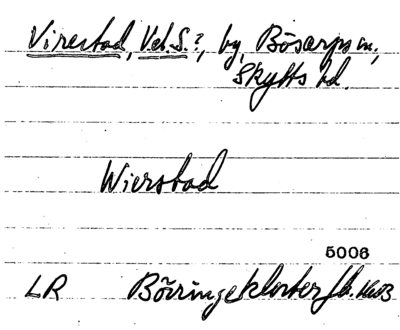 Virestad, Vet.S.?, by, Bösarps sn.,
Skytts hd.
Wierstad
5006
LR Börringekloster Jb. 1603